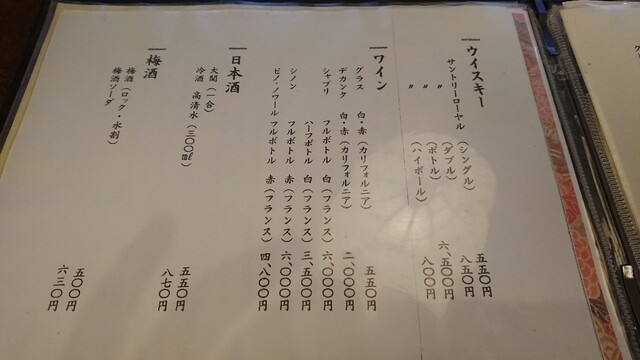 ウイスキー
サントリーローヤル (シングル) 五五〇円
〃 (ダブル) 八五〇円
〃 (ボトル) 六、五〇〇円
〃 (ハイボール) 八〇〇円
ワイン
グラス 白・赤(カリフォルニア) 五五〇円
デカンタ 白・赤(カリフォルニア) 二、〇〇〇円
シャブリ フルボトル 白(フランス) 六、〇〇〇円
ハーフボトル 白(フランス) 三、五〇〇円
シノン フルボトル 赤(フランス) 六、〇〇〇円
ピノ・ノワール フルボトル 赤(フランス) 四、八〇〇円
日本酒
大関(一合) 五五〇円
冷酒 高清水(三〇〇㎖) 八七〇円
梅酒
梅酒(ロック・水割) 五〇〇円
梅酒ソーダ 六三〇円